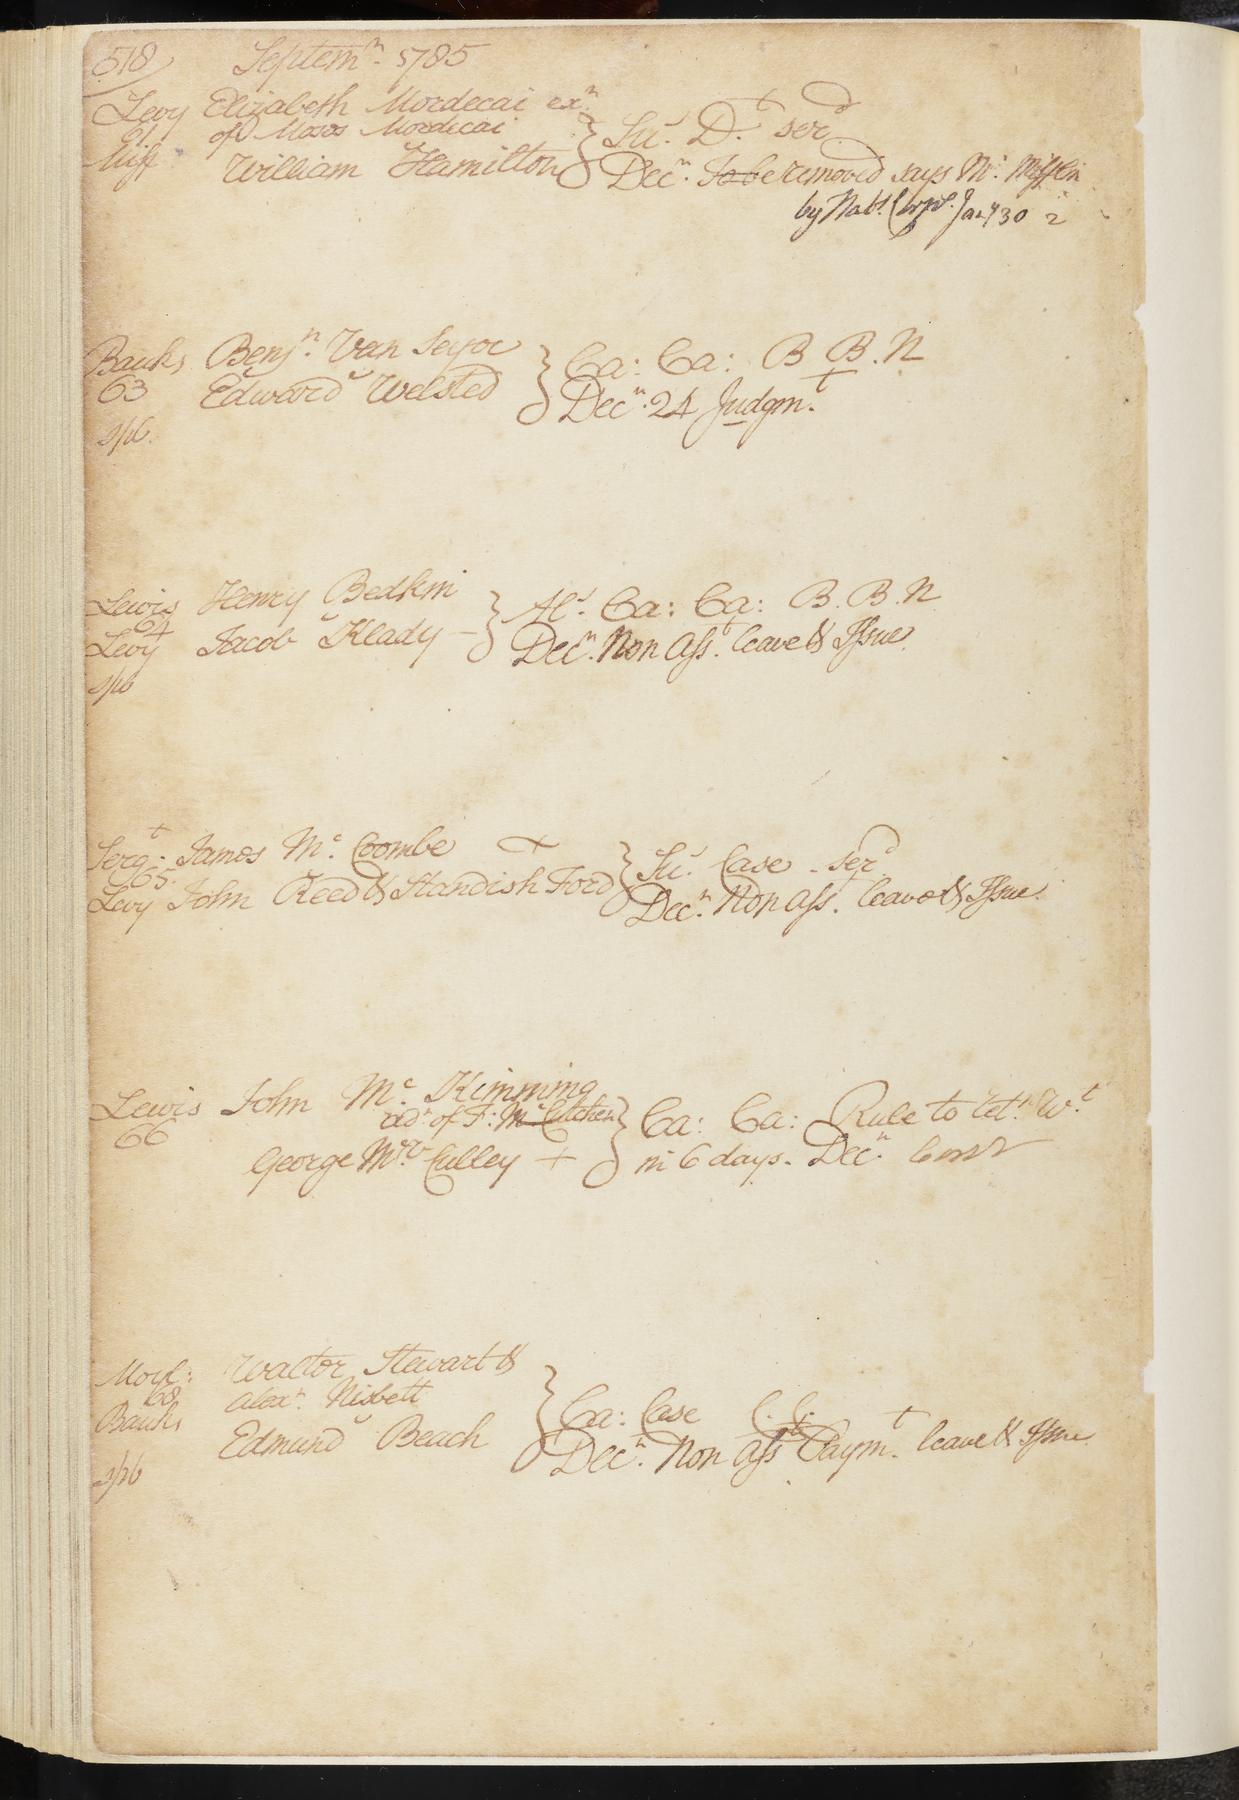 518 Septem.r 1785
Levy Elizabeth Mordecai ex.x
61 of Moses Mordecai } Su.s D.t ser.d
Miff William Hamilton Dec.n To be removed says M.r Mifflin
by Hab.s Corp.s Jan.y 30 2
Banks Benj.n Van Seyoc } Ca: Ca: B B. N
63 Edward Welsted Dec.n 24 Judgm.t
Lewis Henry Bedkin } Al.s Ca: Ca: B. B. N
64
Levy Jacob Klady Dec.n Non Ass.t leave & Issue
Serg.t James M.c Coombe } Su.s Case ser.d
65
Levy John Reed & Standish Ford Dec.n Non Ass. leave & Issue
Lewis John M.c Kimming
66 ad.r of F: M.c Cutchen } Ca: Ca: Rule to let.n W.t
George M.c Culley in 6 days. Dec.n
Moyl: Walter Stewart &
68 Alex.r Nisbett } Ca: Case C. C.
Banks Edmund Beach Dec.n Non Ass.t Paym.t leave & Issue